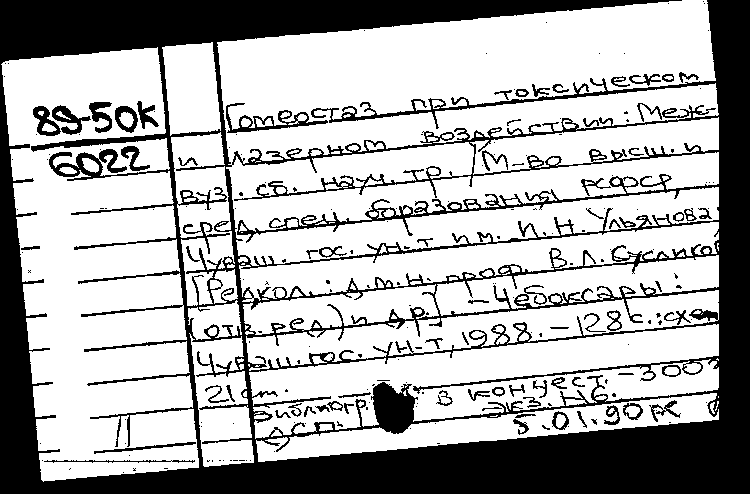 89-50К
6022
Гомеостаз при токсическом
и лазерном воздействии: Меж-
вуз. сб. науч. тр. / М-во высш. и
сред. спец. образования РСФСР,
Чуваш. гос. ун-т им. И. Н. Ульянова;
[Редкол.: д.м.н., проф. В. Л. Сусликов
(отв. ред.) и др.]. - Чебоксары:
Чуваш. гос. ун-т, 1988. - 128 с.: схем
21 см.
Библиогр. в конце ст. - 300
экз. Н6.
ДСП.
5.01.90
11